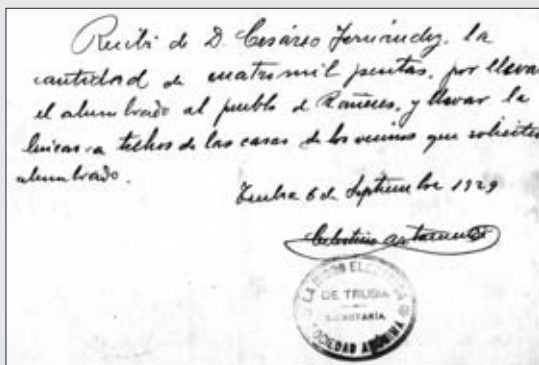 Recibí de D. Cesáreo Fernández, la
cantidad de cuatro mil pesetas, por llevar
el alumbrado al pueblo de Rañeces, y llevar la
lineas a techos de las casas de los vecinos que soliciten
alumbrado.
Trubia 6 de Septiembre 1929
Celestino
LA HIDRO ELECTRICA
DE TRUBIA
SECRETARÍA
SOCIEDAD ANÓNIMA